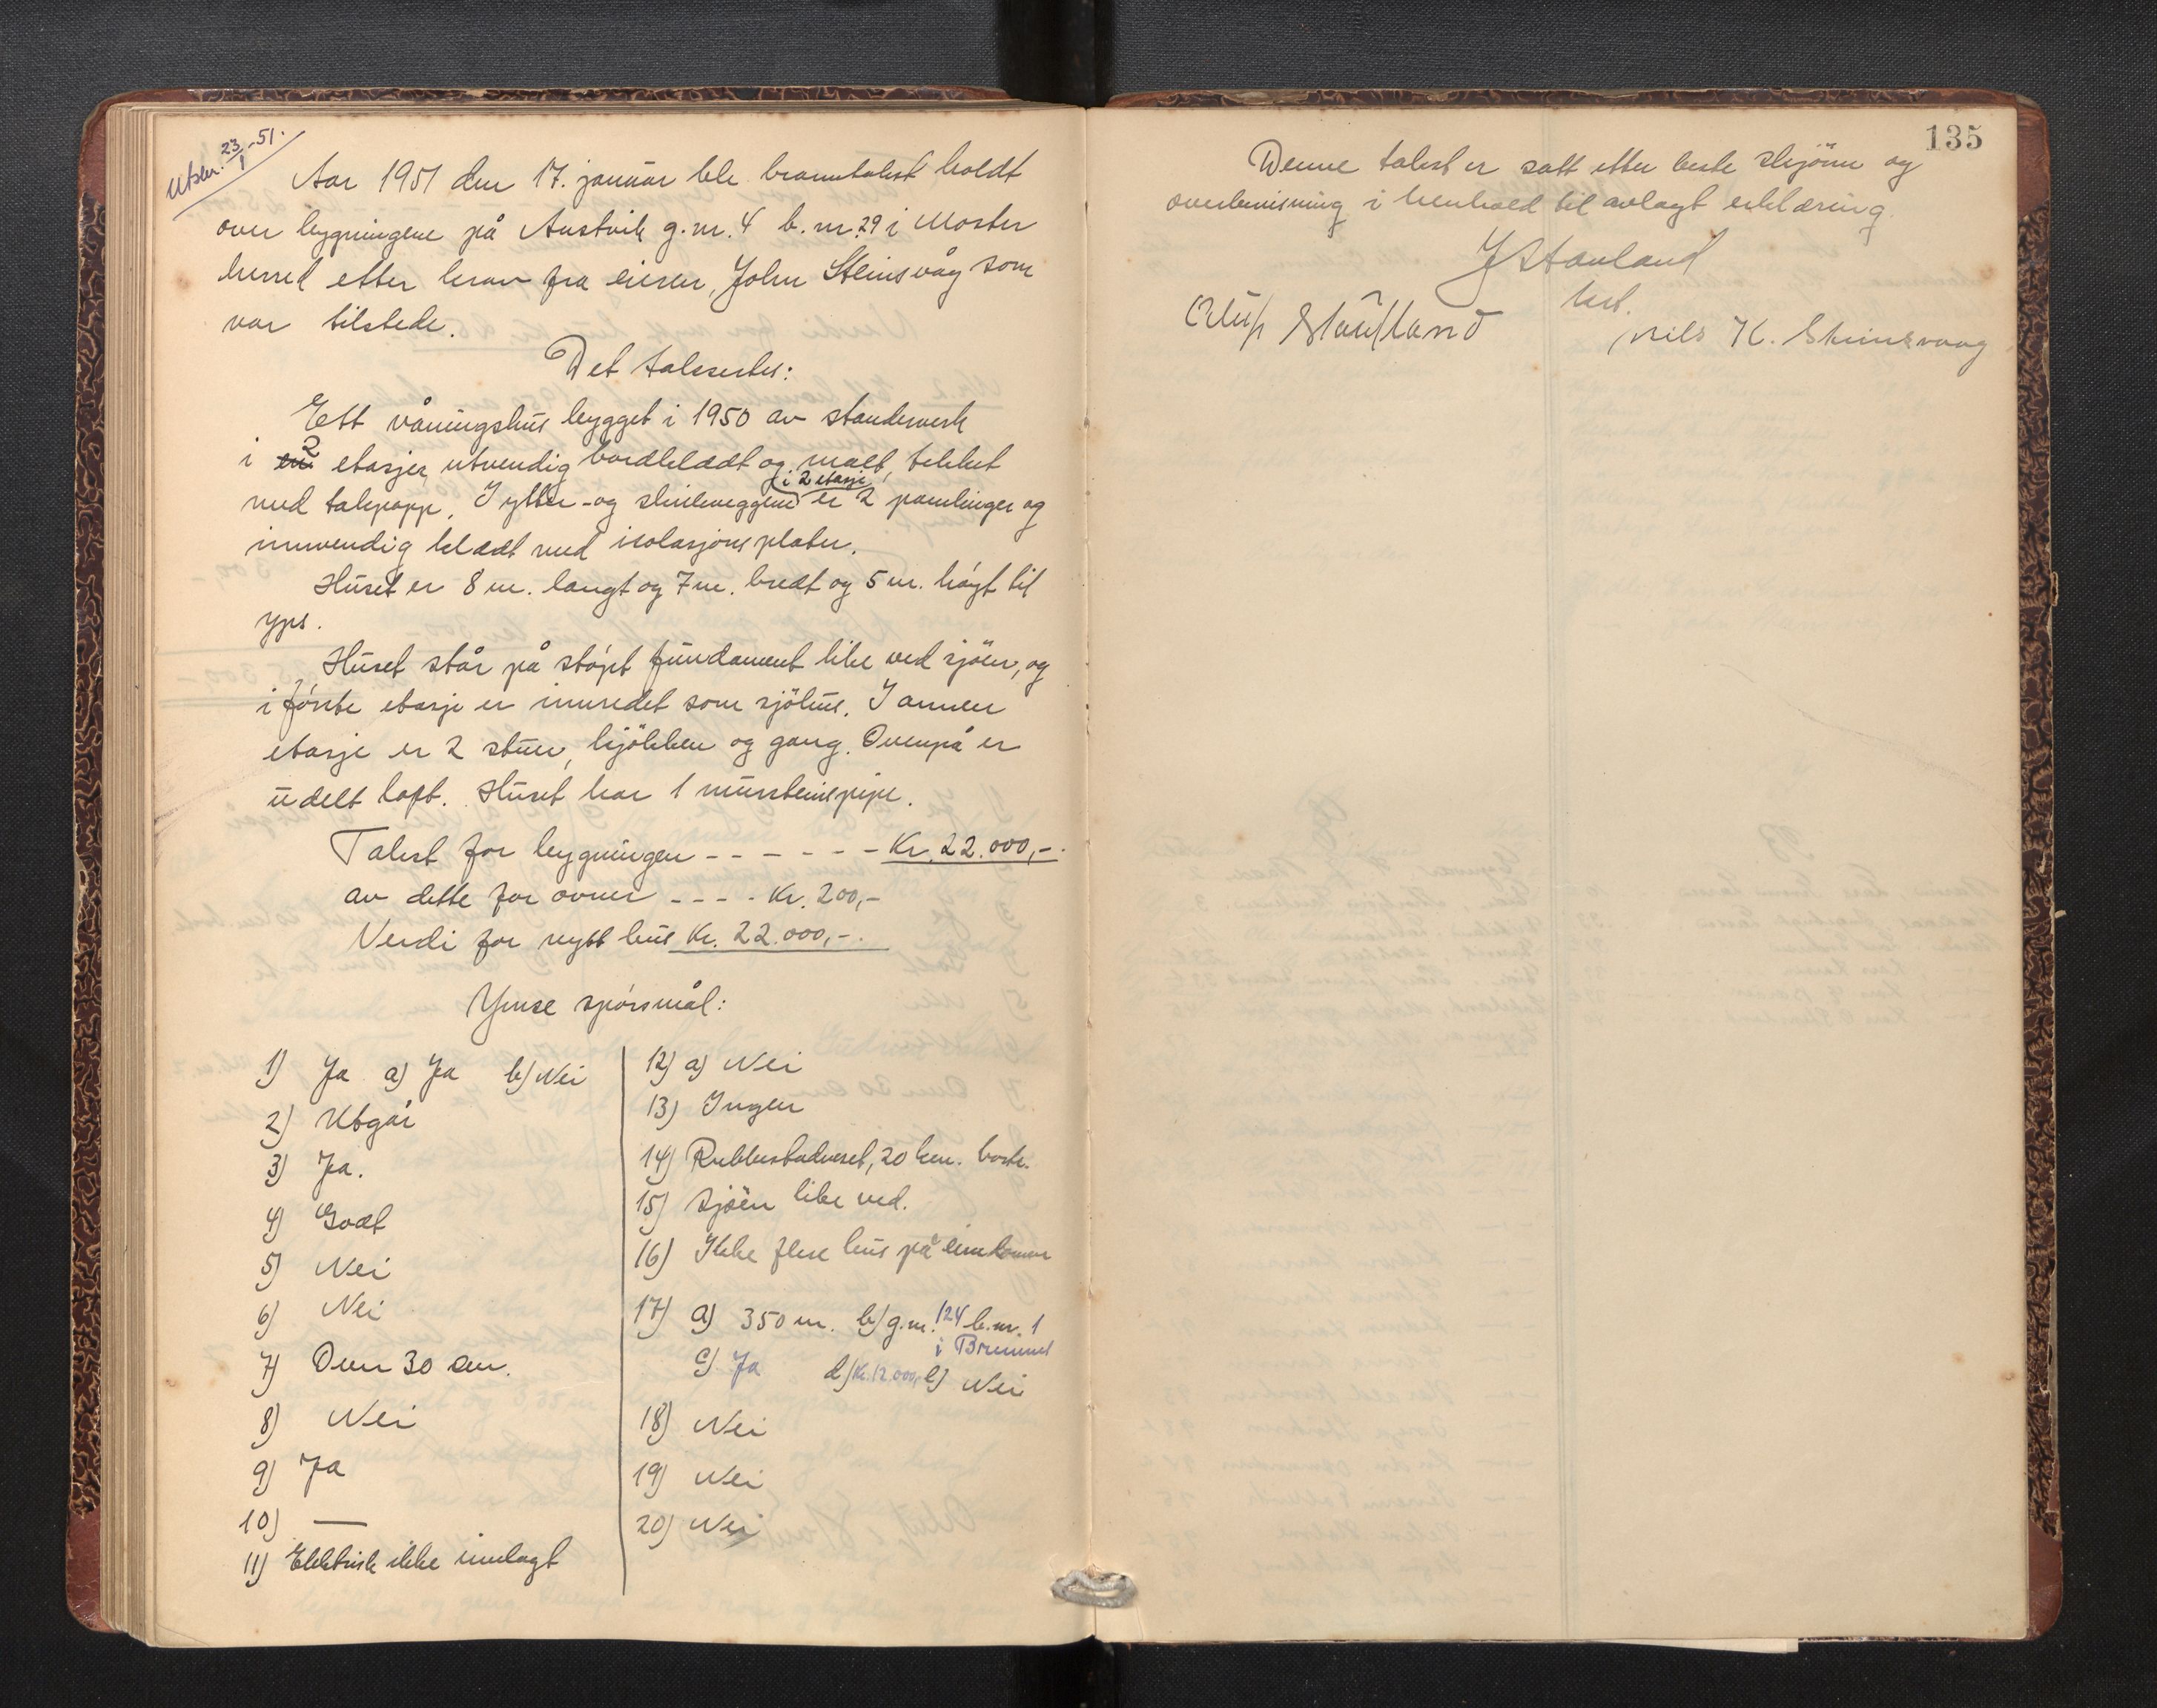 Utskr. 23/1-51.
Aar 1951 den 17. januar ble branntakst holdt
over bygningene på Austvik g.nr. 4 b.nr. 29 i Moster
herred etter krav fra eieren, John Steinsvåg som
var tilstede.
Det takseres:
Ett våningshus bygget i 1950 av standerverk
i 2 etasjer utvendig bordkledt og malt, tekket
med takpapp. I ytter- og skilleveggene i 2 etasje er 2 panelinger og
innvendig kledt med isolasjonsplater.
Huset er 8 m. langt og 7 m. bredt og 5 m. høgt til
yps.
Huset står på støpt fundament like ved sjøen, og
i første etasje er innredet som sjøhus. I annen
etasje er 2 stuer, kjøkken og gang. Ovenpå er
udelt loft. Huset har 1 mursteinspipe.
Takst for bygningen - - - - - - Kr. 22.000,-.
av dette for ovner - - - - Kr. 200,-
Verdi for nytt hus Kr. 22.000,-.
Ymse spørsmål:
1) Ja a) Ja b) Nei
2) Utgår
3) Ja.
4) Godt
5) Nei
6) Nei
7) Over 30 cm.
8) Nei
9) Ja
10) —
11) Elektrisk ikke innlagt
12) a) Nei
13) Ingen
14) Rubbestadneset, 20 km. borte.
15) Sjøen like ved.
16) Ikke flere hus på eiendommen
17) a) 350 m. b) g.nr. 124 b.nr. 1
i Bremnes
c) Ja d) Kr. 12.000,- e) Nei
18) Nei
19) Nei
20) Nei
135
Denne takst er satt etter beste skjønn og
overbevisning i henhold til avlagt erklæring.
J Stauland
lest.
Nils K. Steinsvaag
Stautland